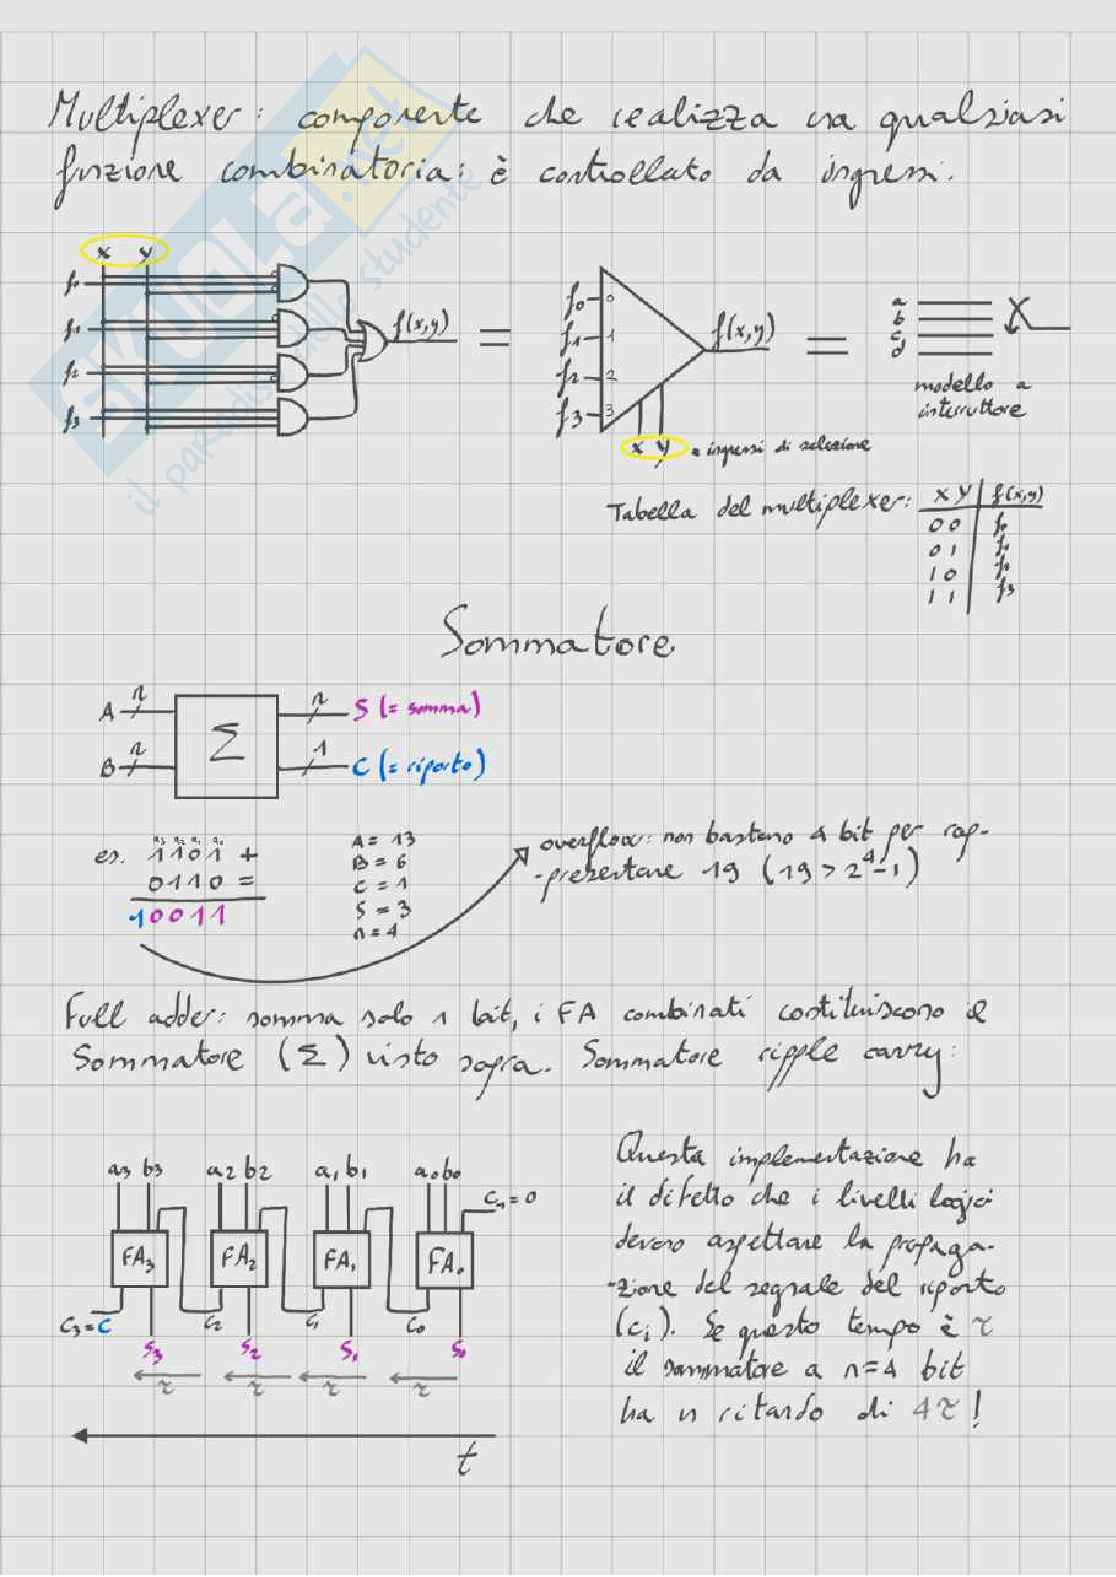 Multiplexer: componente che realizza una qualsiasi
funzione combinatoria: è controllato da ingressi.
SKUOLA.net
il paradiso dello studente
x y
f0
f1
f2
f3
f(x,y)
=
f0 0
f1 1
f2 2
f3 3
f(x,y)
x y = ingressi di selezione
=
a
b
c
d
modello a
interruttore
Tabella del multiplexer:
x y f(x,y)
0 0 f0
0 1
1 0
1 1 f3
Sommatore
A n
B n
Σ
n S (= somma)
1 C (= riporto)
es. 1101 +
0110 =
10011
A = 13
B = 6
C = 1
S = 3
n = 4
overflow: non bastano 4 bit per rap-
-presentare 19 (19 > 2⁴-1)
Full adder: somma solo 1 bit, i FA combinati costituiscono il
Sommatore (Σ) visto sopra. Sommatore ripple carry:
a3 b3 a2 b2 a1 b1 a0 b0
Cin = 0
FA3 FA2 FA1 FA0
C3 = C C2 C1 C0
S3 S2 S1 S0
τ τ τ τ
t
Questa implementazione ha
il difetto che i livelli logici
devono aspettare la propaga-
-zione del segnale del riporto
(ci). Se questo tempo è τ
il sommatore a n=4 bit
ha un ritardo di 4τ!